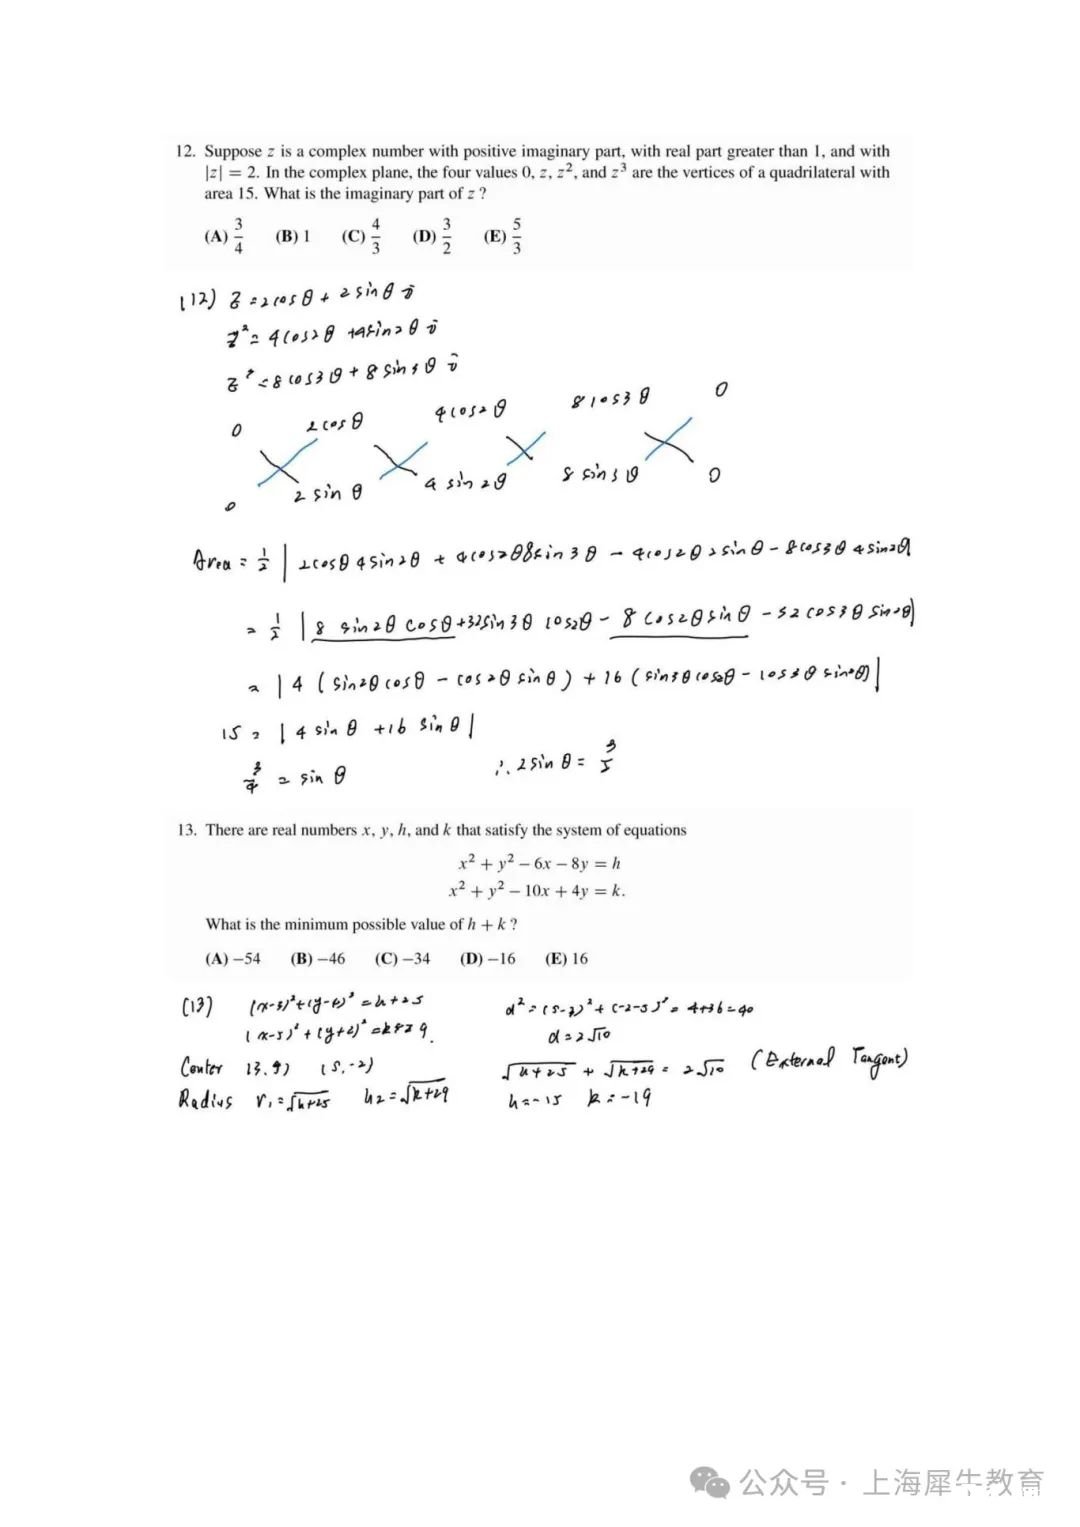 12. Suppose z is a complex number with positive imaginary part, with real part greater than 1, and with
|z| = 2. In the complex plane, the four values 0, z, z², and z³ are the vertices of a quadrilateral with
area 15. What is the imaginary part of z ?
(A) 3/4 (B) 1 (C) 4/3 (D) 3/2 (E) 5/3
(12) z = 2cosθ + 2sinθ i
z² = 4cos2θ + 4sin2θ i
z³ = 8cos3θ + 8sin3θ i
0 2cosθ 4cos2θ 8cos3θ 0
0 2sinθ 4sin2θ 8sin3θ 0
Area = 1/2 | 2cosθ 4sin2θ + 4cos2θ 8sin3θ − 4cos2θ 2sinθ − 8cos3θ 4sin2θ|
= 1/2 | 8 sin2θ cosθ + 32sin3θ cos2θ − 8 cos2θ sinθ − 32 cos3θ sin2θ|
= | 4 (sin2θ cosθ − cos2θ sinθ) + 16 (sin3θ cos2θ − cos3θ sin2θ)|
15 = | 4 sinθ + 16 sinθ |
3/4 = sinθ ∴ 2sinθ =
13. There are real numbers x, y, h, and k that satisfy the system of equations
x² + y² − 6x − 8y = h
x² + y² − 10x + 4y = k.
What is the minimum possible value of h + k ?
(A) −54 (B) −46 (C) −34 (D) −16 (E) 16
(13) (x−3)²+(y−4)² = h+25 d² = (5−3)² + = 4+36=40
(x−5)² + (y+2)² = k+29. d = 2√10
Center (5,−2) √h+25 + √k+29 = 2√10 (External Tangent)
Radius r₁ = √h+25 = √k+29 h = −15 k = −19
公众号 · 上海犀牛教育